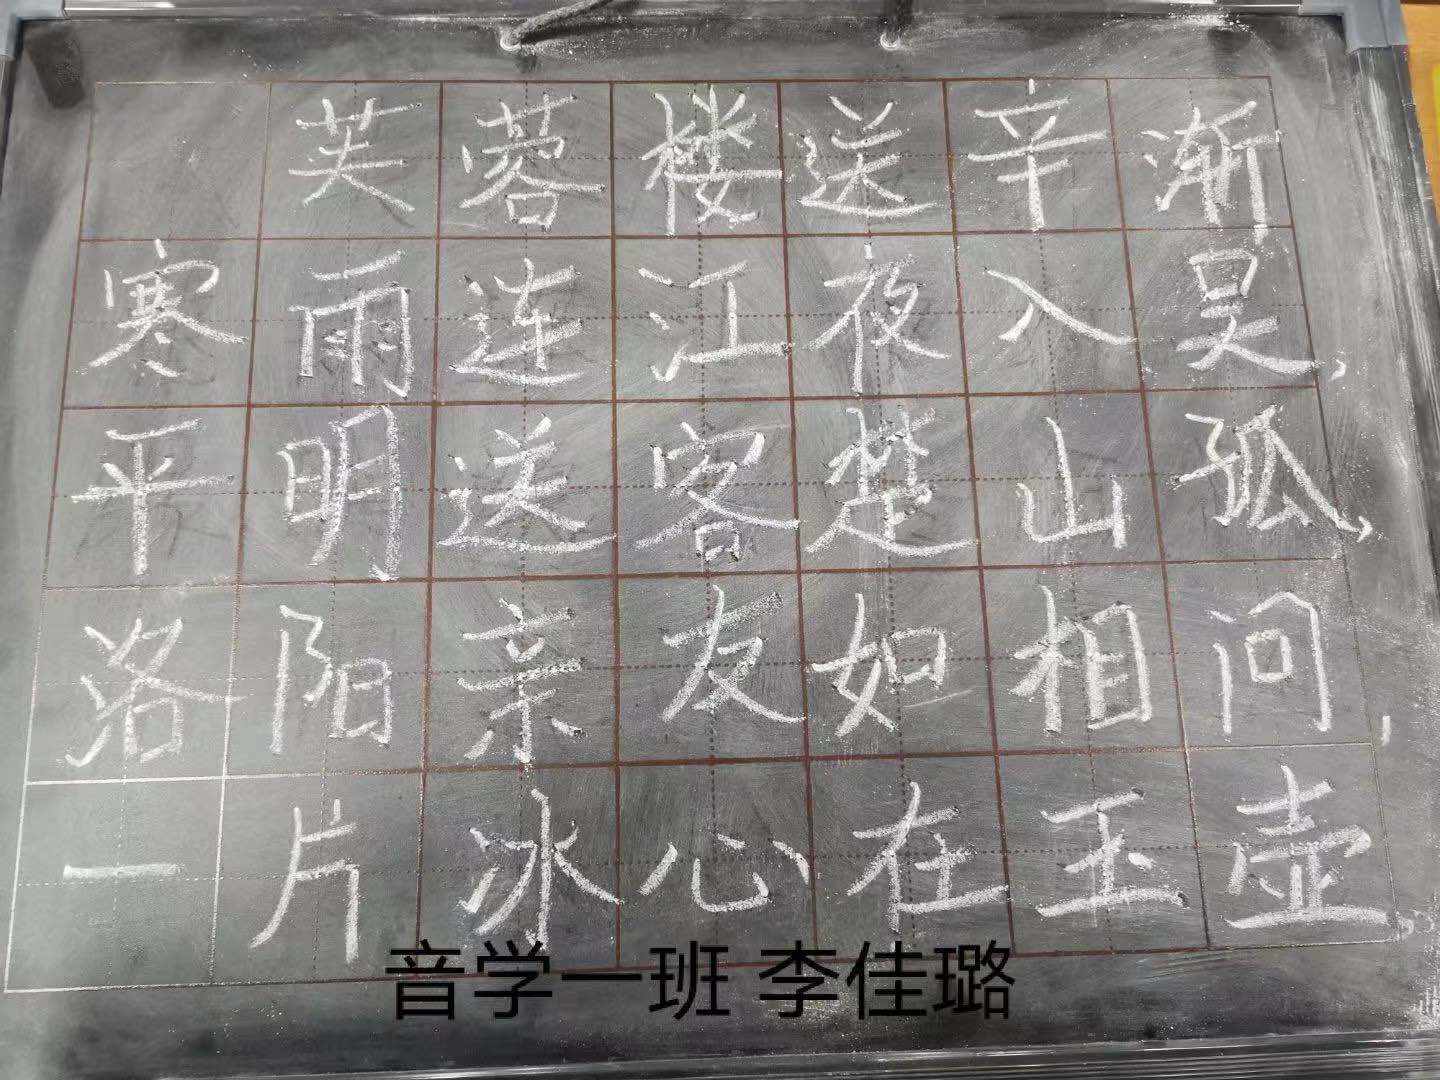 芙蓉楼送辛渐
寒雨连江夜入吴,
平明送客楚山孤,
洛阳亲友如相问,
一片冰心在玉壶。
音学一班 李佳璐